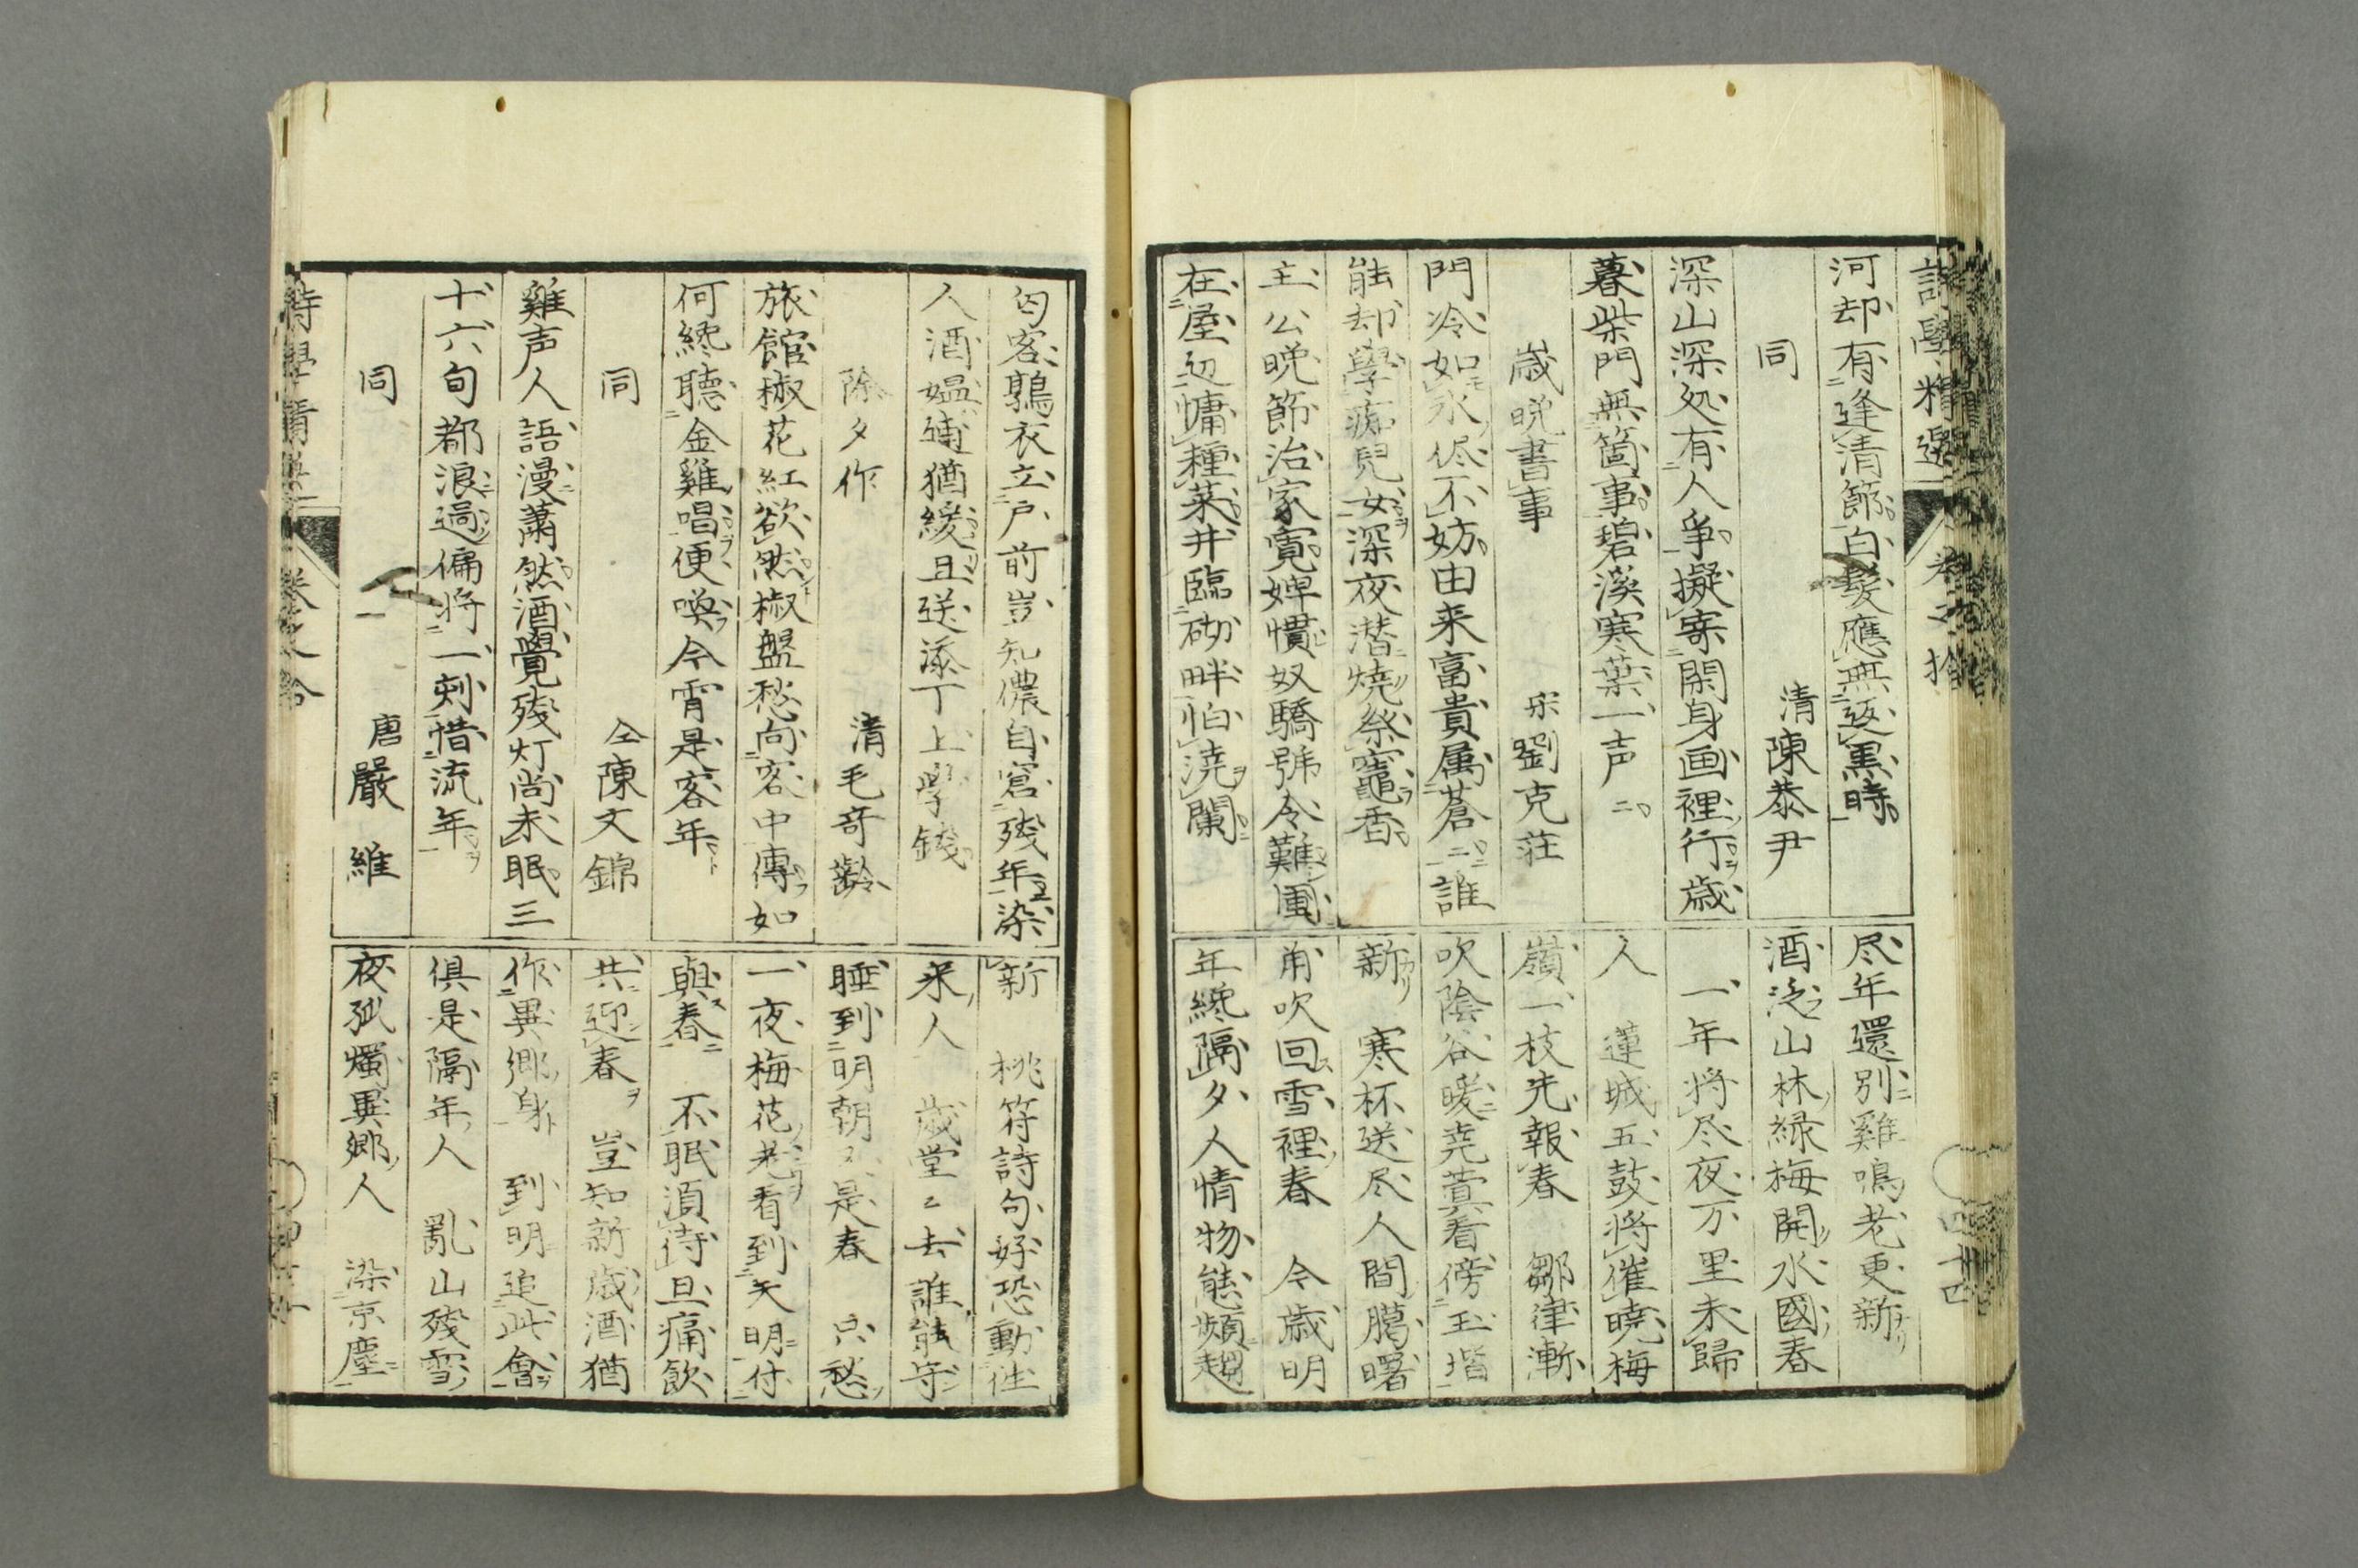 河却有逢清節白髮應無返黒時
同　清陳恭尹
深山深処有人争擬寄閑身画裡行歳
暮柴門無箇事碧溪寒葉一声〻
歳晩書事　宋劉克莊
門冷如氷侭不妨由来富貴属蒼〻誰
能却學痴兒女深夜潜燒祭竈香
主公晩節治家寛婢慣奴驕號令難圃
在屋辺慵種菜井臨砌畔怕澆蘭
尽年還別雞鳴老更新
酒泛山林緑梅開水國春
一年将尽夜万里未歸
人　蓮城五鼓将催暁梅
嶺一枝先報春　鄒律漸
吹陰谷暖尭蓂看傍玉堦
新　寒杯送尽人間臈曙
角吹回雪裡春　今歳明
年終隔夕人情物態頻趨
匃客鶉衣立戸前豈知儂自窘残年染
人酒媪逋猶緩且送添丁上學錢
除夕作　清毛奇齡
旅館椒花紅欲然椒盤愁向客中傳如
何終聽金雞唱便喚今宵是客年
同　仝陳文錦
雞声人語漫蕭然酒覺残灯尚未眠三
十六旬都浪過偏将一刻惜流年
同　唐嚴維
新　桃符詩句好恐動往
来人　歳堂〻去誰能守
睡到明朝又是春　只愁
一夜梅花老看到天明付
與春　不眠湏待旦痛飲
共迎春　豈知新歳酒猶
作異郷身　到明追此會
俱是隔年人　亂山残雪
夜孤燭異郷人　染京塵